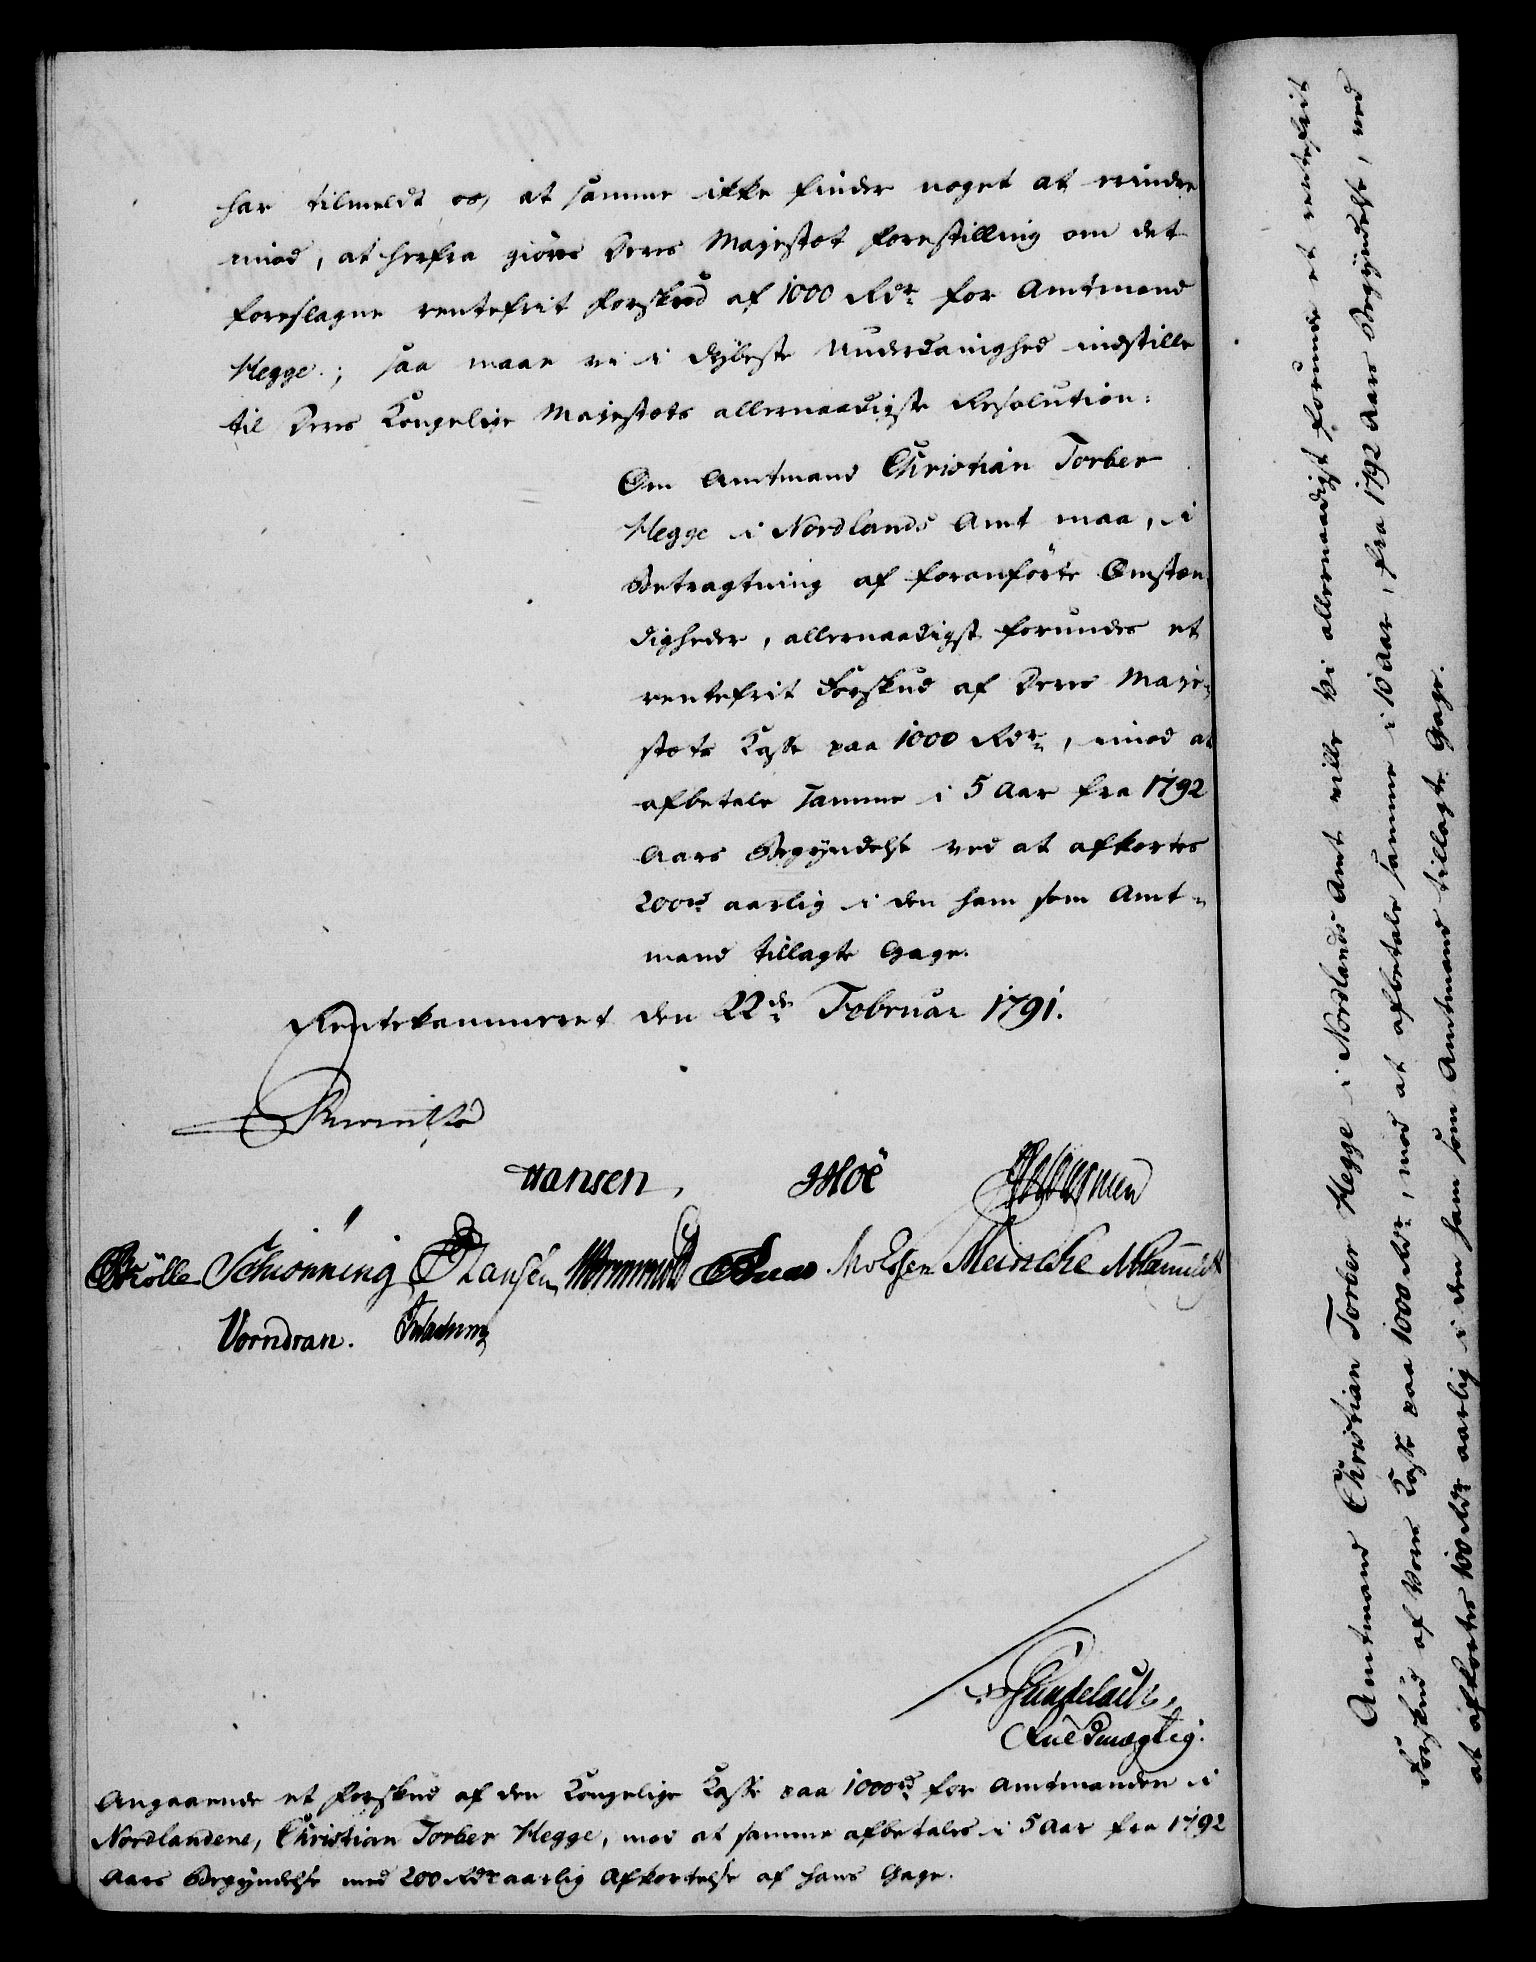 har tilmeldt os, at samme ikke finder noget at erindre
imod, at herfra giøres Deres Majestæt Forestilling om det
foreslagne rentefrit Forskud af 1000 Rdr for Amtmand
Hegge; saa maae vi i dybeste Underdanighed indstille
til Deres Kongelige Majestæts allernaadigste Resolution:
Om Amtmand Christian Torber
Hegge i Nordlands Amt maa, i
Betragtning af foranførte Omstæn-
digheder, allernaadigst forundes et
rentefrit Forskud af Deres Maje-
stæts Casse paa 1000 Rdr, imod at
afbetale samme i 5 Aar fra 1792
Aars Begyndelse ved at afkortes
200rd aarlig i den ham som Amt-
mand tillagte Gage.
Rentekammeret den 22de Februar 1791.
Hansen, Moe
Schiønning Hansen Wormskiold Meincke
Vorndran.
Gundelach,
Fuldmægtig.
Angaaende et Forskud af den Kongelige Casse paa 1000rd for Amtmanden i
Nordlandene, Christian Torber Hegge, mod at samme afbetales i 5 Aar fra 1792
Aars Begyndelse med 200 Rdr aarlig Afkortelse af hans Gage.
Amtmand Christian Torber Hegge i Nordlands Amt ville Vi allernaadigst forunde et rentefrit
Forskud af Vores Casse paa 1000 Rdr, mod at afbetale samme i 10 Aar, fra 1792 Aars Begyndelse, ved
at afkortes 100 Rdr aarlig i den ham som Amtmand tillagte Gage.